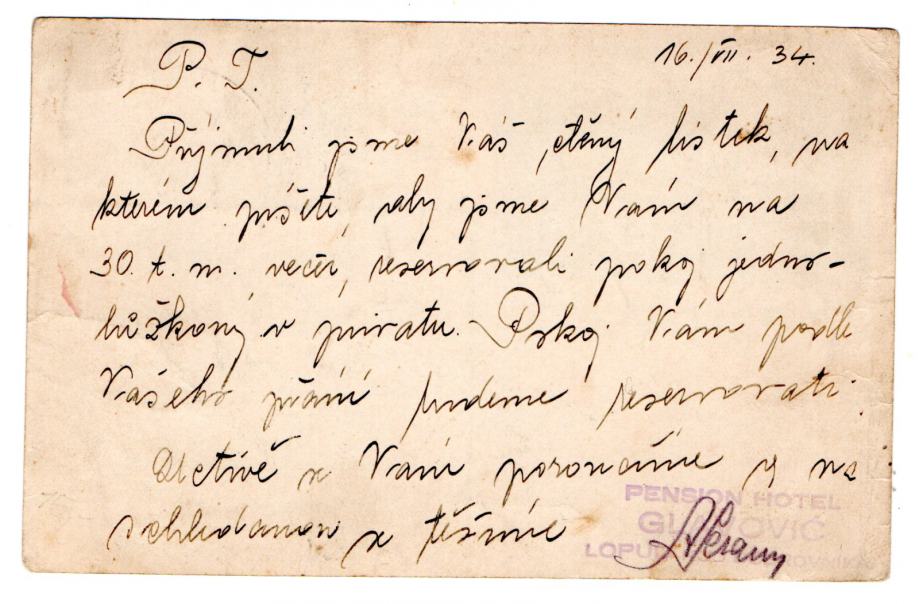 P. T.
16./VII. 34.
Přijmuli jsme Váš ctěný lístek, na
kterém píšete, aby jsme Vám na
30. t. m. večer, reservovali pokoj jedno-
lůžkový v privatu. Pokoj Vám podle
Vašeho přání budeme reservovati.
Uctivě se Vám poroučíme a na
schledanou se těšíme
PENSION HOTEL
GLAVOVIĆ